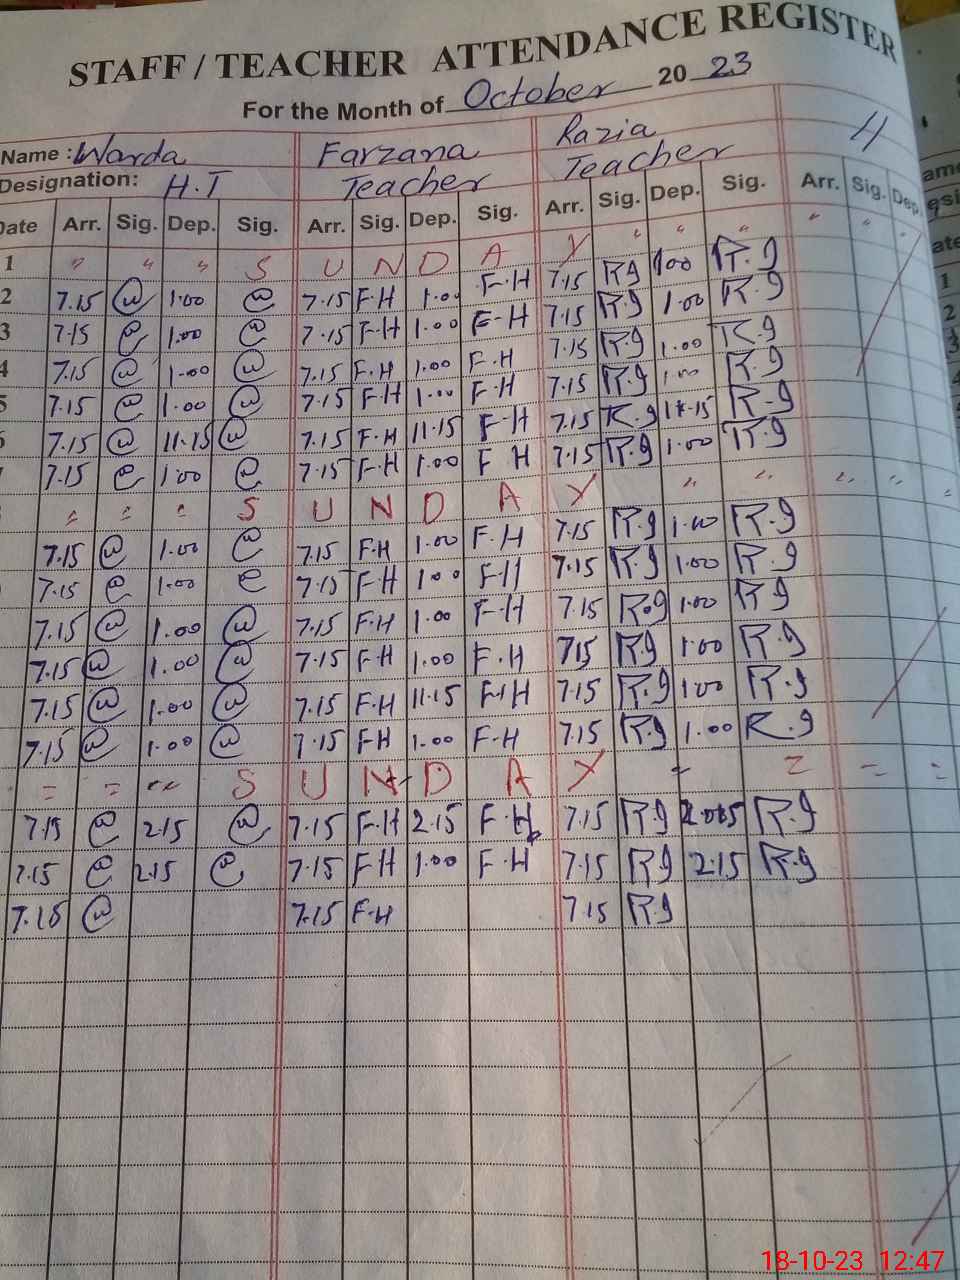 STAFF / TEACHER ATTENDANCE REGISTER
For the Month of October 20 23
Name : Warda Farzana Razia
Designation: H.T Teacher Teacher
Date Arr. Sig. Dep. Sig. Arr. Sig. Dep. Sig. Arr. Sig. Dep. Sig. Arr. Sig. Dep.
1 " " " S U N D A Y " " " " "
2 7.15 @ 1.00 @ 7.15 F.H 1.00 F.H 7.15 R.9 1.00 R.9
3 7.15 @ 1.00 @ 7.15 F.H 1.00 F-H 7.15 R.9 1.00 R.9
4 7.15 @ 1.00 @ 7.15 F.H 1.00 F.H 7.15 R.9 1.00 R.9
5 7.15 @ 1.00 @ 7.15 F.H 1.00 F.H 7.15 R.9 1.00 R.9
7.15 @ 11.15 @ 7.15 F.H 11.15 F-H 7.15 R.9 11.15 R.9
7.15 @ 1.00 @ 7.15 F.H 1.00 F H 7.15 R.9 1.00 R.9
= = = S U N D A Y " " " " =
7.15 @ 1.00 @ 7.15 F.H 1.00 F.H 7.15 R.9 1.00 R.9
7.15 @ 1.00 @ 7.15 F.H 1.00 F.H 7.15 R.9 1.00 R.9
7.15 @ 1.00 @ 7.15 F.H 1.00 F-H 7.15 R.9 1.00 R.9
7.15 @ 1.00 @ 7.15 F.H 1.00 F.H 7.15 R.9 1.00 R.9
7.15 @ 1.00 @ 7.15 F.H 11.15 F.H 7.15 R.9 1.00 R.9
7.15 @ 1.00 @ 7.15 F.H 1.00 F.H 7.15 R.9 1.00 R.9
= = " S U N D A Y = = = =
7.15 @ 2.15 @ 7.15 F.H 2.15 F.H 7.15 R.9 R.9
7.15 @ 2.15 @ 7.15 F.H 1.00 F.H 7.15 R.9 2.15 R.9
7.15 @ 7.15 F.H 7.15 R.9
18-10-23 12:47